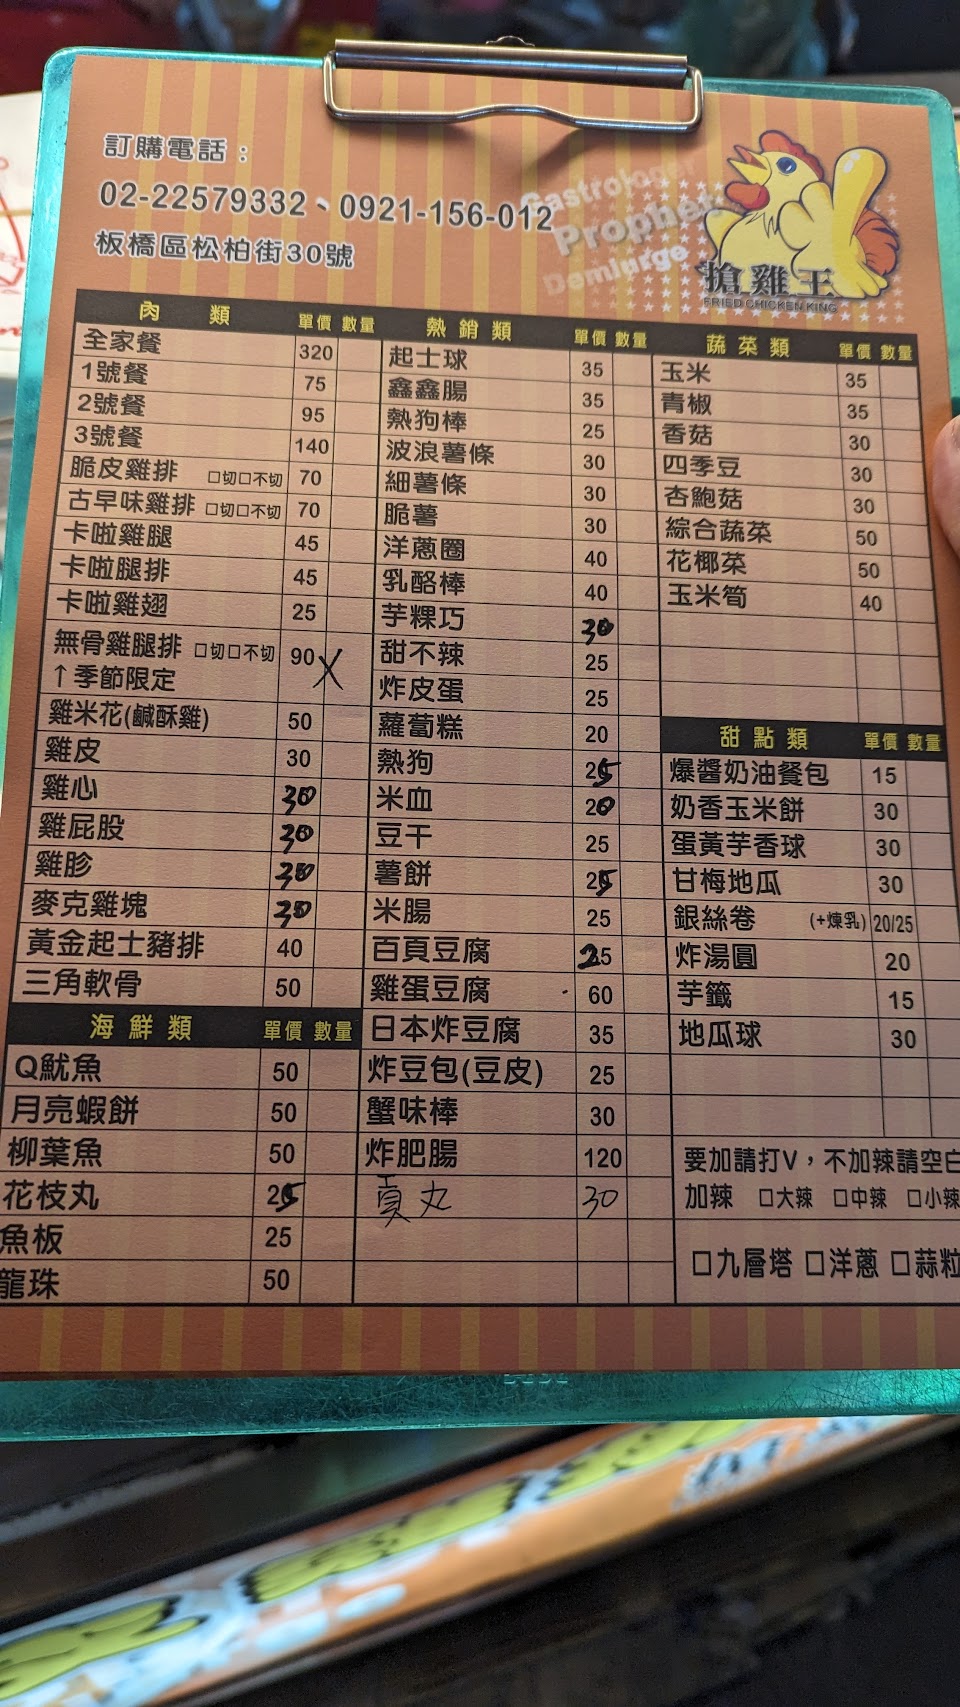 訂購電話：
02-22579332、0921-156-012
板橋區松柏街30號
Gastrologer
Prophet
Demiurge
搶雞王
FRIED CHICKEN KING
肉類 單價 數量
全家餐 320
1號餐 75
2號餐 95
3號餐 140
脆皮雞排 □切□不切 70
古早味雞排 □切□不切 70
卡啦雞腿 45
卡啦腿排 45
卡啦雞翅 25
無骨雞腿排 □切□不切 90 X
↑季節限定
雞米花(鹹酥雞) 50
雞皮 30
雞心 30
雞屁股 30
雞胗 30
麥克雞塊 30
黃金起士豬排 40
三角軟骨 50
海鮮類 單價 數量
Q魷魚 50
月亮蝦餅 50
柳葉魚 50
花枝丸 25
魚板 25
龍珠 50
熱銷類 單價 數量
起士球 35
鑫鑫腸 35
熱狗棒 25
波浪薯條 30
細薯條 30
脆薯 30
洋蔥圈 40
乳酪棒 40
芋粿巧 30
甜不辣 25
炸皮蛋 25
蘿蔔糕 20
熱狗 25
米血 20
豆干 25
薯餅 25
米腸 25
百頁豆腐 25
雞蛋豆腐 60
日本炸豆腐 35
炸豆包(豆皮) 25
蟹味棒 30
炸肥腸 120
貢丸 30
蔬菜類 單價 數量
玉米 35
青椒 35
香菇 30
四季豆 30
杏鮑菇 30
綜合蔬菜 50
花椰菜 50
玉米筍 40
甜點類 單價 數量
爆醬奶油餐包 15
奶香玉米餅 30
蛋黃芋香球 30
甘梅地瓜 30
銀絲卷 (+煉乳) 20/25
炸湯圓 20
芋籤 15
地瓜球 30
要加請打V，不加辣請空白
加辣 □大辣 □中辣 □小辣
□九層塔 □洋蔥 □蒜粒